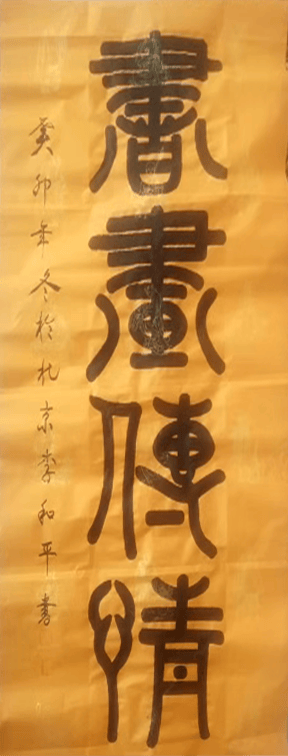 書畫傳情
癸卯年冬於北京李和平書